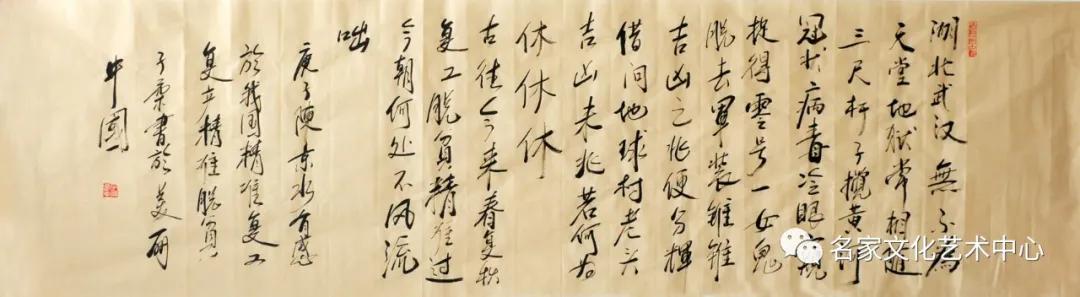 湖北武汉無不為
天堂地獄常相随
三尺杆子攪黄河
冠状病毒冷眼窥
捉得零号一女鬼
脱去軍装雖雖
吉凶之兆便分輝
借问地球村老头
吉凶未兆若何为
休休休
古往今来春复秋
复工脱貧精准过
今朝何处不风流
咄
庚子陳东水有感
於我国精准复工
复产精准脱貧
子秉書於美丽
中國
名家文化艺术中心